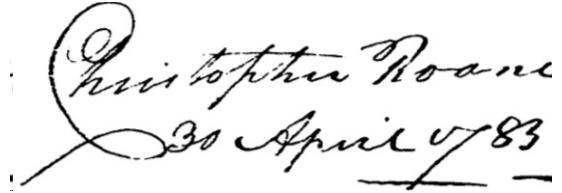 Christopher Roane
30 April 1783